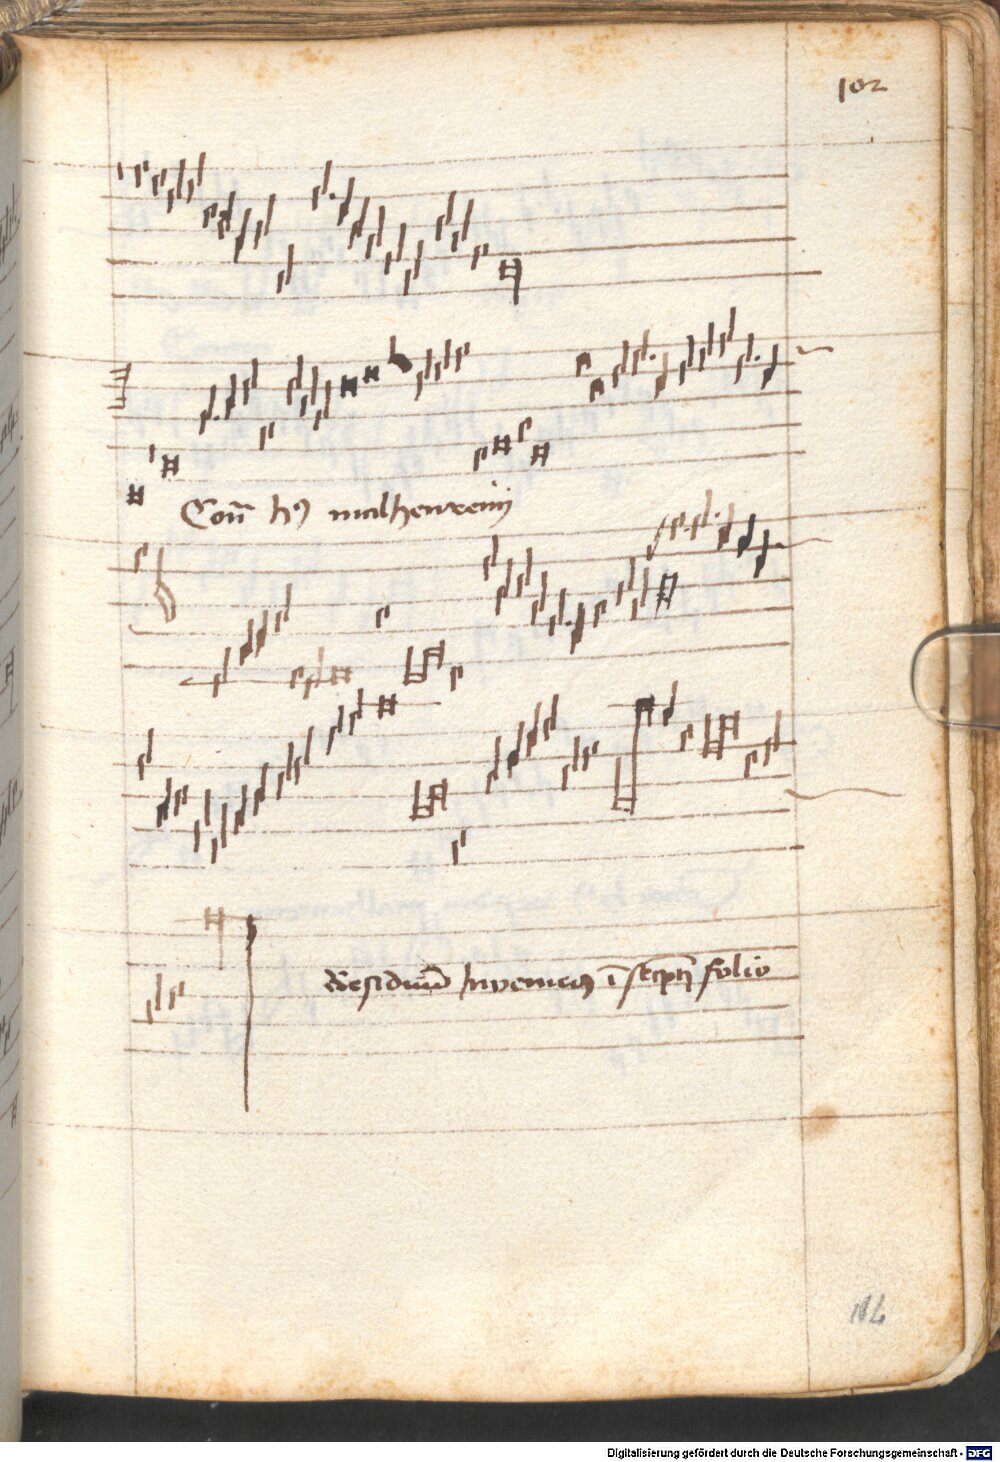 102
Con̄ hꝰ malheureux
Residuū Invenies ī seq̄nti folio
Digitalisierung gefördert durch die Deutsche Forschungsgemeinschaft - DFG